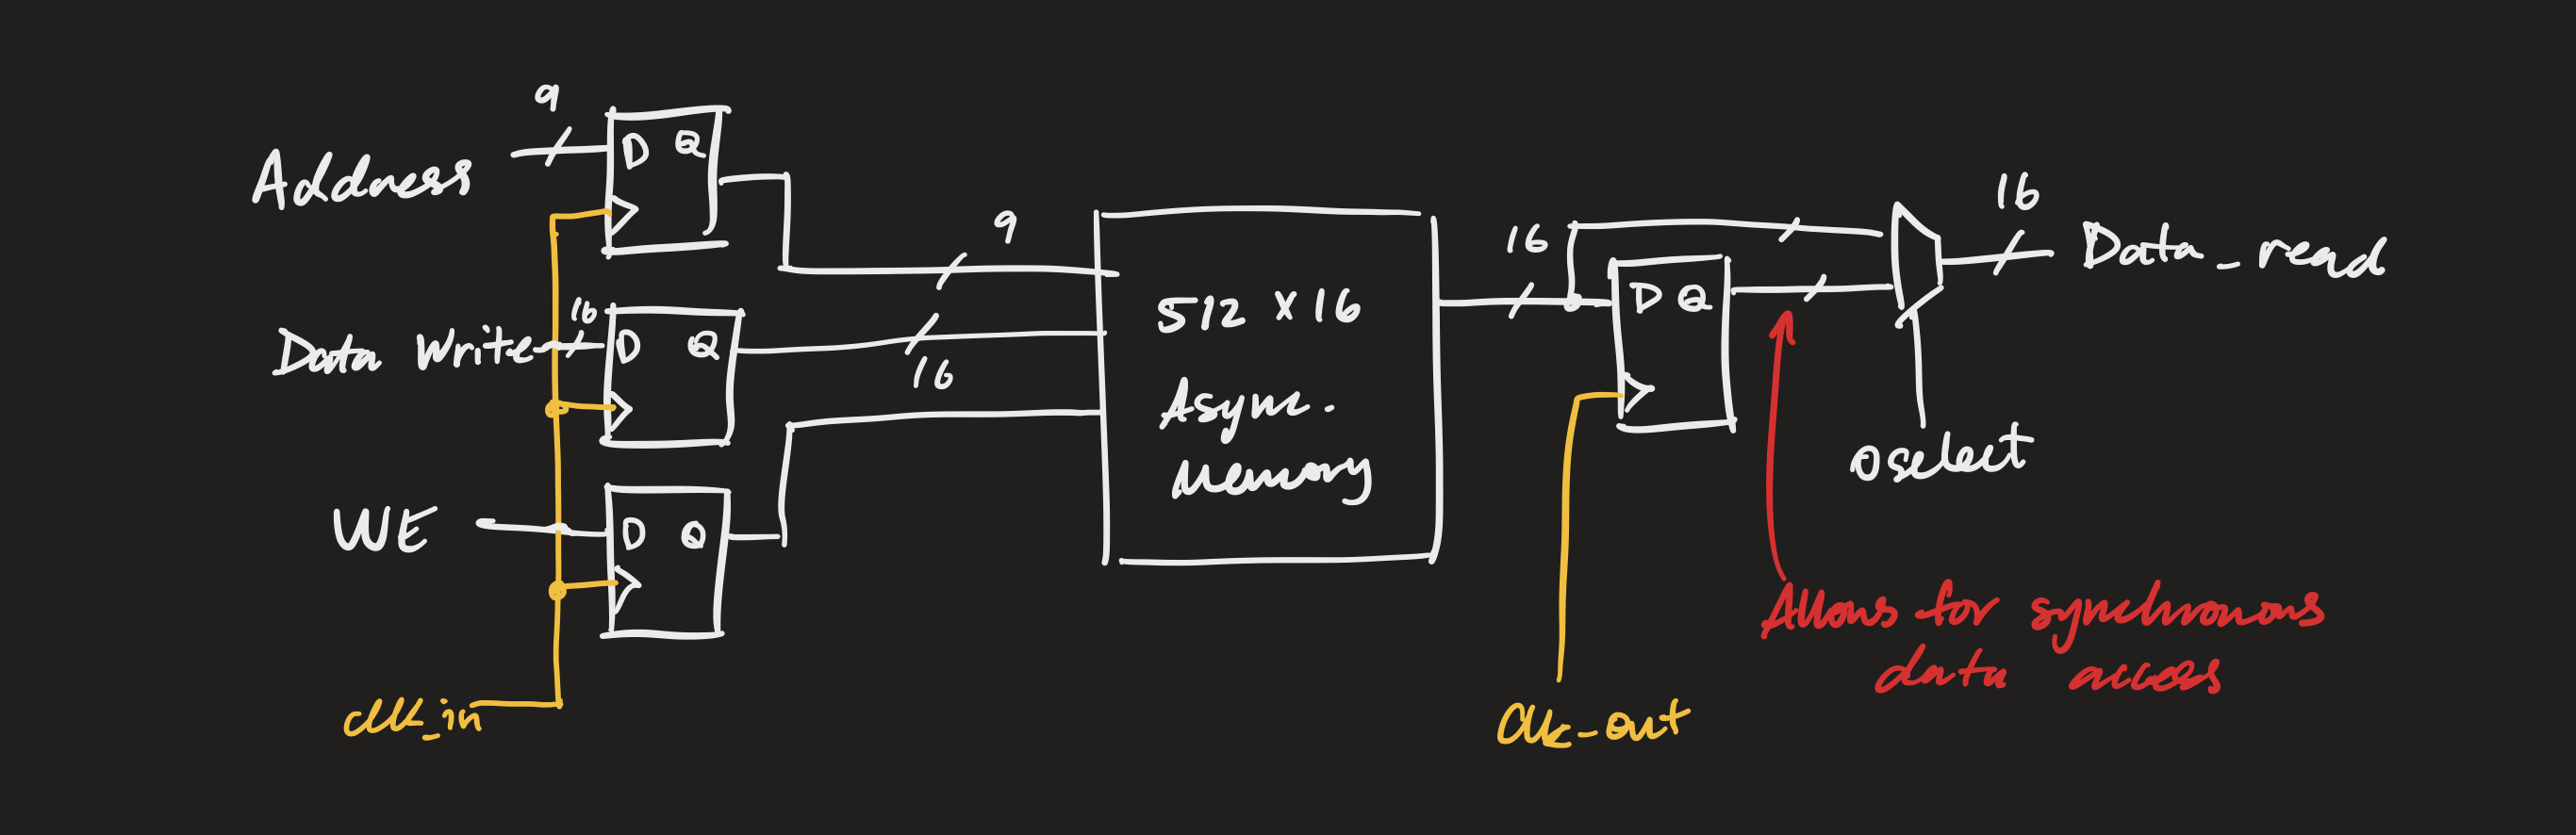 9
Address
D Q
9
16
Data Write
D Q
16
WE
D Q
clk_in
512 x 16
Async.
Memory
16
D Q
clk_out
16
Data_read
oselect
Allows for synchronous
data access